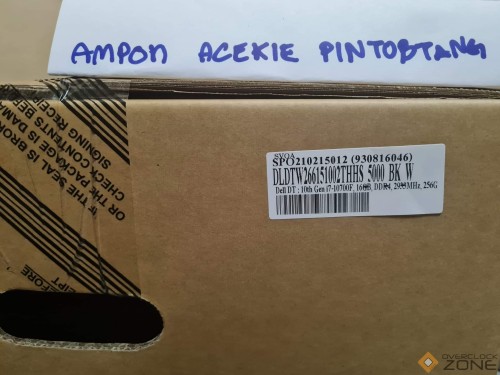 AMPON ACEKIE PINTOBTANG
SVOA
SPO210215012 (930816046)
DLDTW266151002THHS 5000 BK W
Dell DT : 10th Gen i7-10700F, 16GB, DDR4, 2933MHz, 256G
IF THE SEAL IS BROKEN
OR THE PACKAGE IS DAMA
CHECK CONTENTS BEFORE
SIGNING RECEIPT
EFORE
CEIPT
OVERCLOCK
ZONE